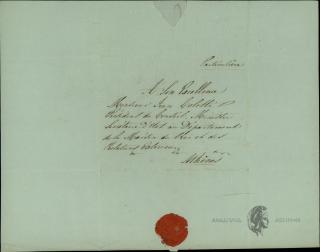 Particulière
A Son Excellence
Monsieur Jean Coletti
Président du Conseil, Ministre
Secrétaire d'Etat au Département
de la Maison du Roi et des
Relations Extérieures
Athènes